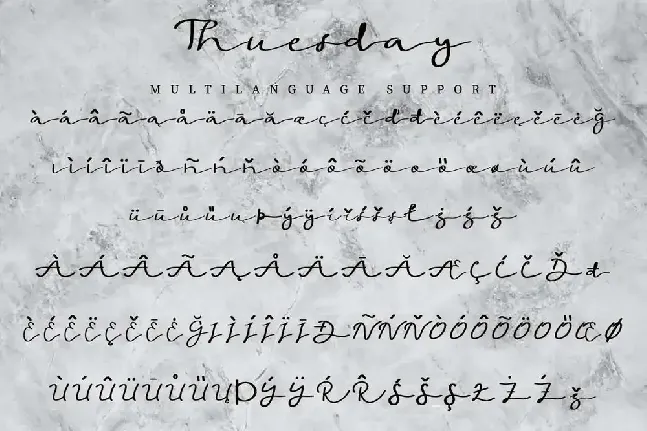 Thuesday
MULTILANGUAGE SUPPORT
à á â ã ą å ä ā ă æ ç ć č ď đ è é ê ë ę ě ē ė ğ
ı ì í î ï ī ð ñ ń ň ò ó ô õ ö ø ő œ ø ù ú û
ü ū ů ű ų þ ý ÿ ŕ ř ś š ş ł ż ź ž
À Á Â Ã Ą Å Ä Ā Ă Æ Ç Ć Č Ď đ
È É Ê Ë Ę Ě Ē Ė Ğ I Ì Í Î Ï Ī Đ Ñ Ń Ň Ò Ó Ô Õ Ö Ő Œ Ø
Ù Ú Û Ü Ū Ů Ű Ų Þ Ý Ÿ Ŕ Ř Ś Š Ş Ł Ż Ź ž